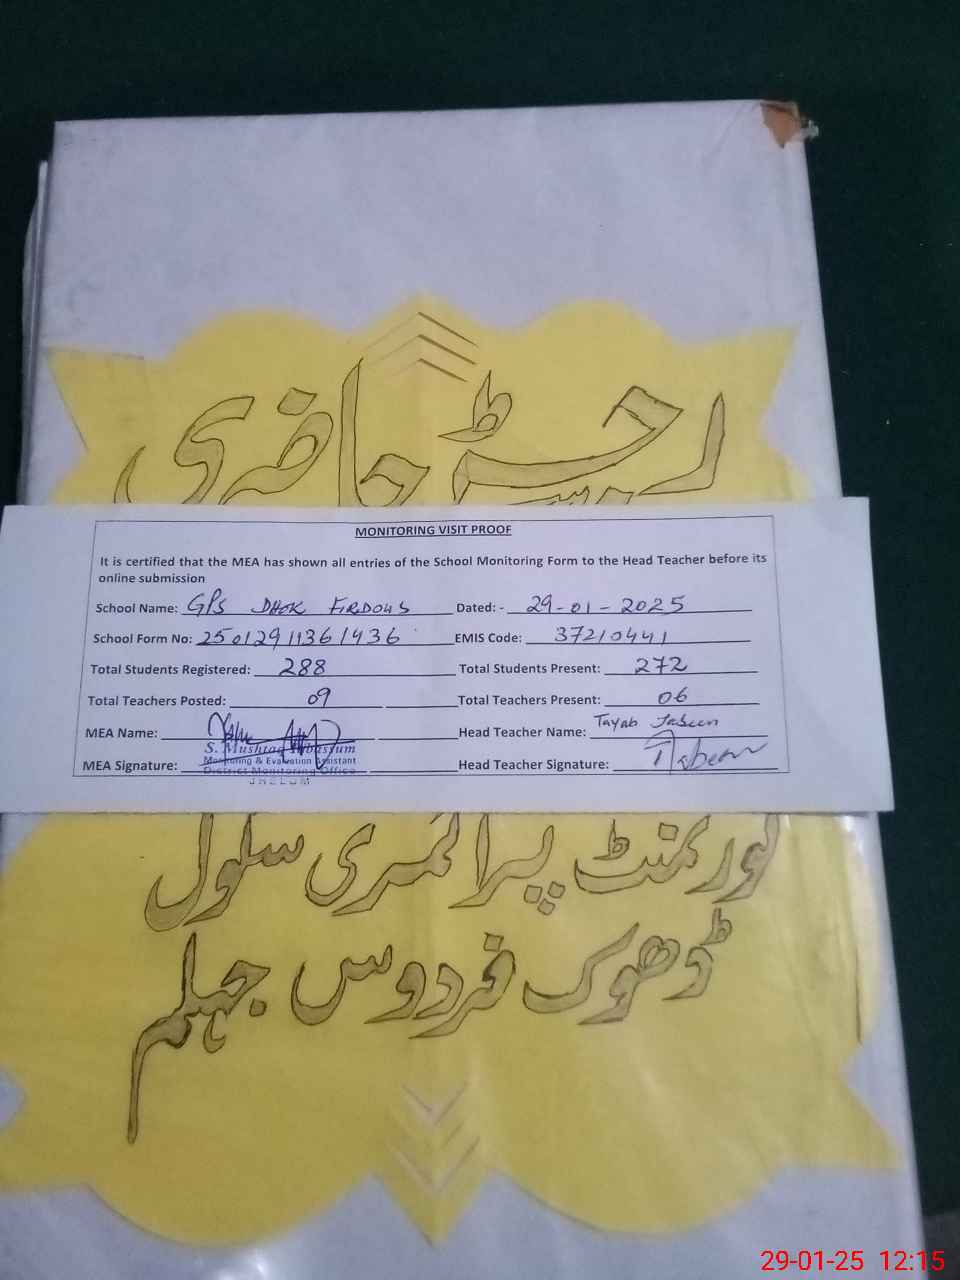 رجسٹر حاضری
MONITORING VISIT PROOF
It is certified that the MEA has shown all entries of the School Monitoring Form to the Head Teacher before its
online submission
School Name: GPS DHOK FIRDOUS Dated: - 29-01-2025
School Form No: 25012911361436 EMIS Code: 37210441
Total Students Registered: 288 Total Students Present: 272
Total Teachers Posted: 09 Total Teachers Present: 06
MEA Name: Head Teacher Name: Tayab Jabeen
S. Mushtaq Tabassum
Monitoring & Evaluation Assistant
MEA Signature: Head Teacher Signature:
District Monitoring Office
JHELUM
گورنمنٹ پرائمری سکول
ڈھوک فردوس جہلم
29-01-25 12:15